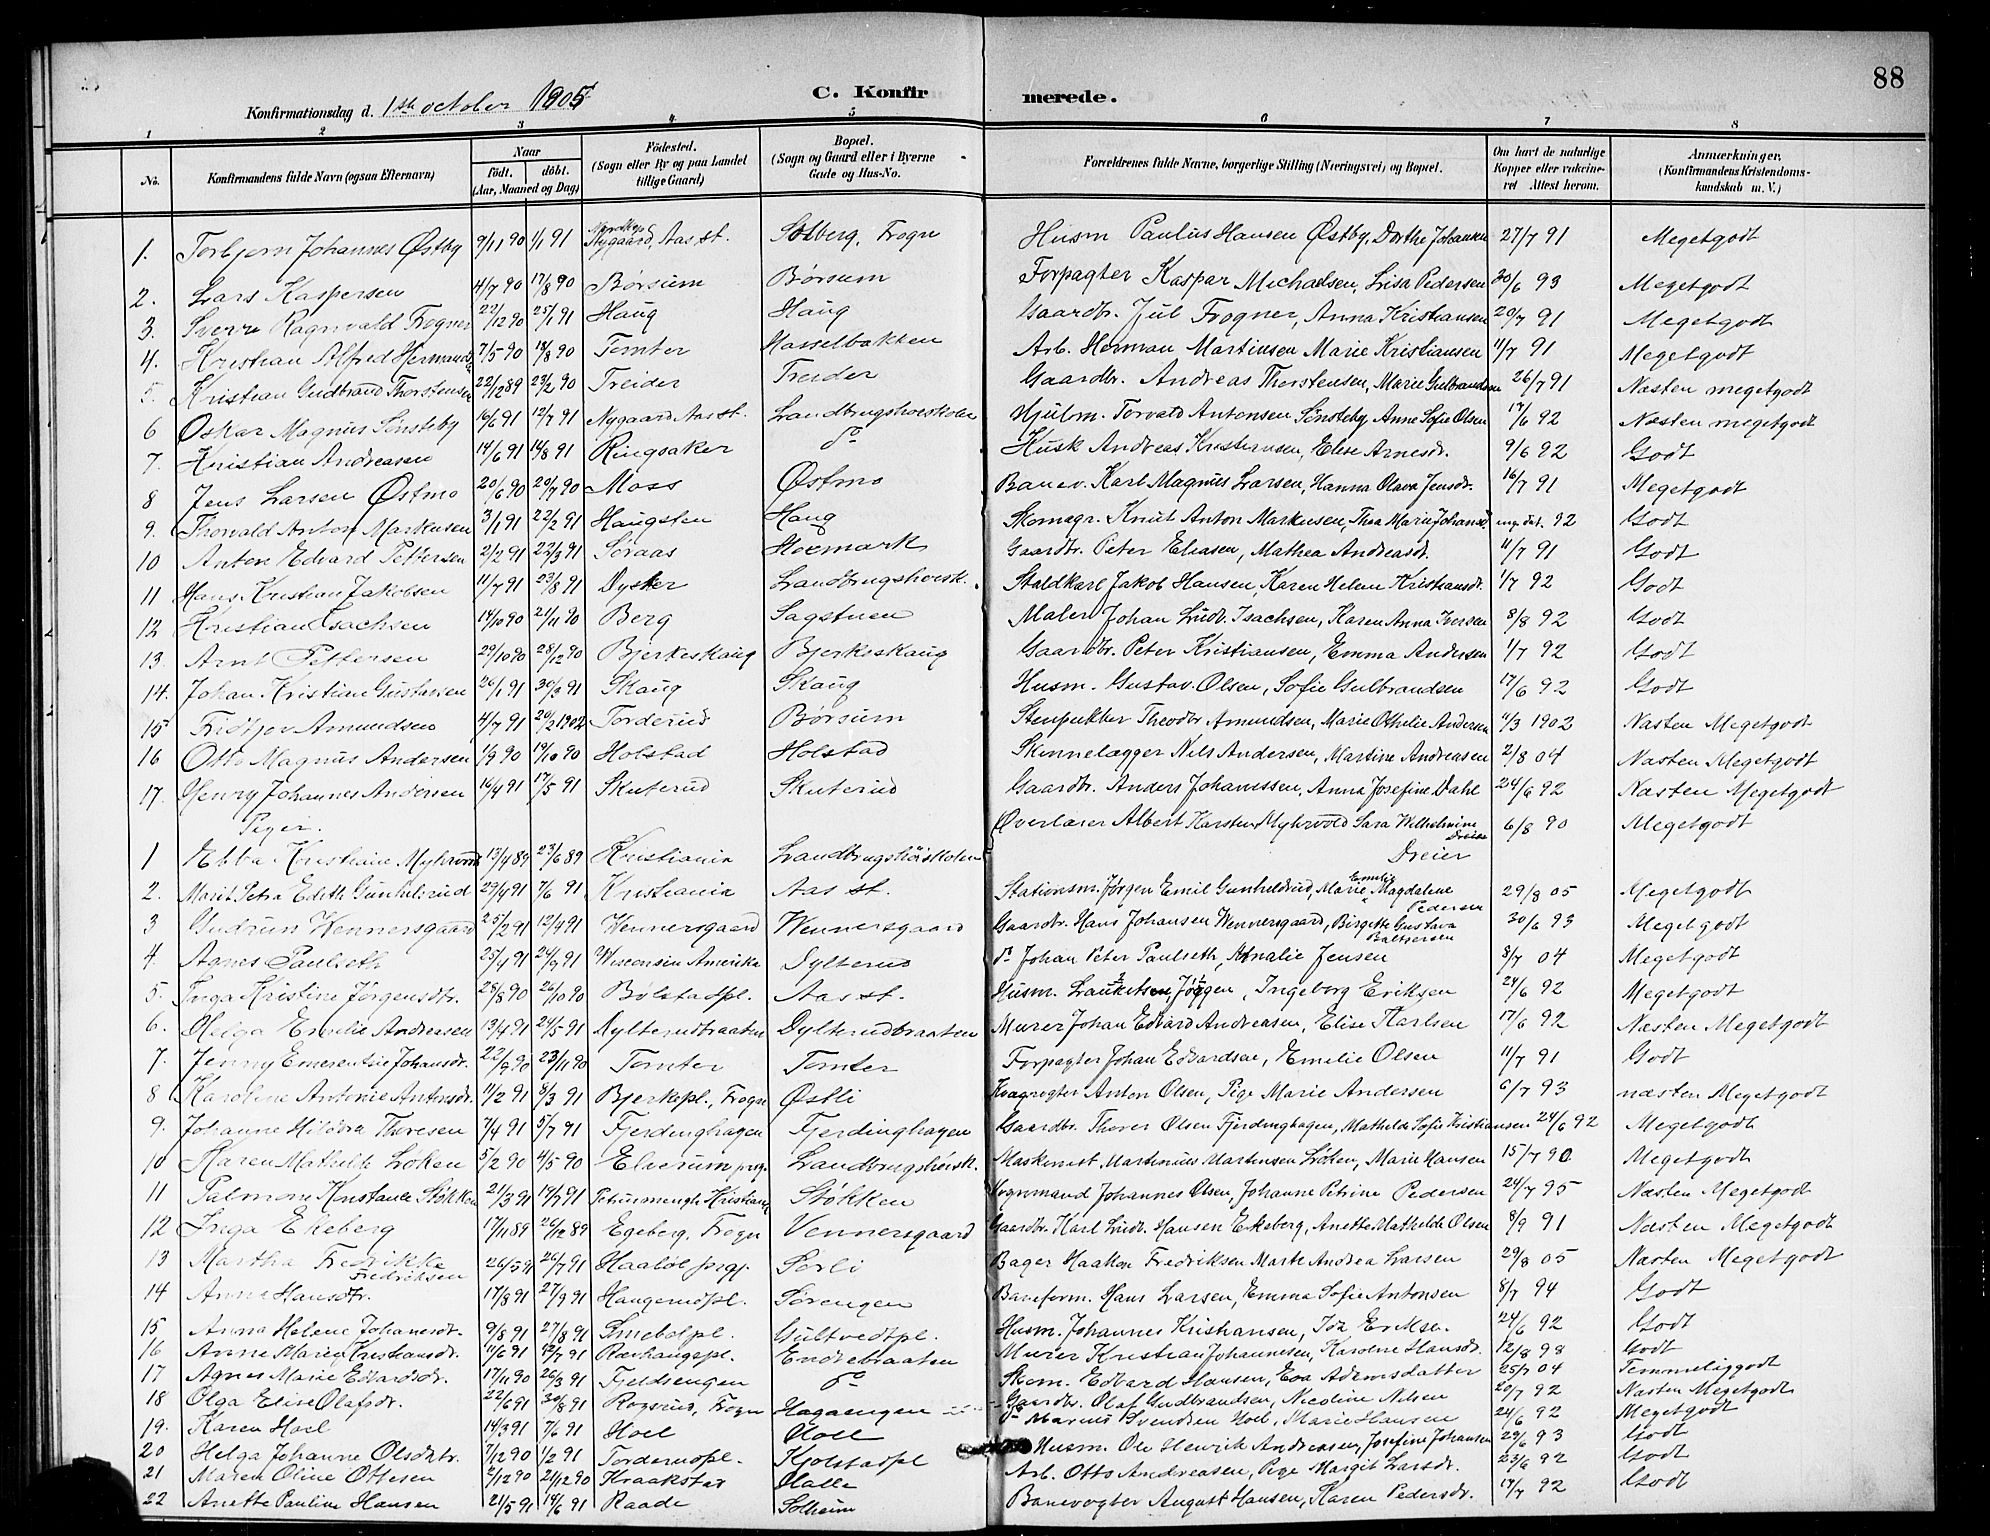 88
C. Konfirmerede.
Konfirmationsdag d. 1ste october 1905
1 2 3 4 5 6 7 8
No. Konfirmandens fulde Navn (ogsaa Efternavn) Naar født. døbt. (Aar, Maaned og Dag) Fødested. (Sogn eller By og paa Landet tillige Gaard) Bopæl. (Sogn og Gaard eller i Byerne Gade og Hus-No. Forældrenes fulde Navne, borgerlige Stilling (Næringsvei) og Bopæl. Om havt de naturlige Kopper eller vakcineret Attest herom. Anmærkninger. (Konfirmandens Kristendomskundskab m. V.)
1. Torbjørn Johannes Østby 9/11 90 1/1 91 Nygaard, Aas st. Solberg, Frogn Husm Paulus Hansen Østby, Dorthe Johansen 27/7 91 Megetgodt
2. Lars Kaspersen 4/7 90 17/8 90 Børsum Børsum Forpagter Kaspar Michaelsen, Lisa Pedersen 30/6 93 Megetgodt
3. Sverre Ragnvald Frogner 22/12 90 25/1 91 Haug Haug Gaardbr. Jul Frogner, Anna Kristiansen 20/7 91 Megetgodt
4. Kristian Alfred Hermands 7/5 90 18/8 90 Tomter Hasselbakken Arb. Herman Martinsen Marie Kristiansen 11/7 91 Megetgodt
5. Kristian Gudbrand Thorstensen 22/12 89 23/2 90 Treider Treider Gaardbr. Andreas Thorstensen, Marie Gulbrandsen 26/7 91 Næsten megetgodt
6 Oskar Magnus Sønsteby 16/6 91 12/7 91 Nygaard Aas st. Landbrugshøiskolen Hjulm. Torvald Antonsen Sønsteby, Anne Sofie Olsen 17/6 92 Næsten megetgodt
7. Kristian Andreasen 14/6 91 14/8 91 Ringsaker do Husk Andreas Kristiansen, Elise Arnesdr. 9/6 92 Godt
8 Jens Larsen Østmo 20/6 90 20/7 90 Moss Østmo Banev. Karl Magnus Larsen, Hanna Olava Jensdr. 16/7 91 Megetgodt
9. Thorvald Anton Markusen 3/1 91 22/2 91 Haugsten Haug Skomagr. Knut Anton Markusen, Thea Marie Johansd. 92 Godt
10 Anton Edvard Pettersen 2/2 91 22/3 91 Søraas Hoxmark Gaardbr. Peter Eliasen, Mathea Andreasdr. 11/7 91 Godt
11 Hans Kristian Jakobsen 11/7 91 23/8 91 Dyster Landbrugshøisk. Staldkarl Jakob Hansen, Karen Helene Kristiansdr. 1/7 92 Godt
12 Kristian Isachsen 14/10 90 21/11 90 Berg Sagstuen Maler Johan Ludv. Isachsen, Karen Anna Iversen 8/8 92 Godt
13. Arnt Pettersen 29/10 90 28/12 90 Bjerkeskaug Bjerkeskaug Gaardbr. Peter Kristiansen, Emma Andersen 1/7 92 Godt
14. Johan Kristian Gustavsen 26/1 91 30/3 91 Skaug Skaug Husm. Gustav Olsen, Sofie Gulbrandsen 17/6 92 Godt
15 Fridtjov Amundsen 4/7 91 20/2 1902 Torderud Børsum Stenpukker Theodor Amundsen, Marie Othelie Andersen 11/3 1902 Næsten Megetgodt
16 Otto Magnus Andersen 1/9 90 19/10 90 Holstad Holstad Skinnelægger Nils Andersen, Martine Andreasen 2/8 04 Næsten Megetgodt
17. Henry Johannes Andersen 16/4 91 17/5 91 Skuterud Skuterud Gaardbr. Anders Johannessen, Anna Josefine Dahl 24/6 92 Næsten Megetgodt
Piger.
1 Ebba Kristiane Myhrvold 13/4 89 23/6 89 Kristiania Landbrugshøiskolen Overlærer Albert Karsten Myhrvold Sara Wilhelmine Dreier Dreier 6/8 90 Megetgodt
2. Marit Petra Edith Gunhildrud 29/4 91 7/6 91 Kristiania Aas st. Stationsm. Jørgen Emil Gunhildrud, Marie Emilie Magdalene Pedersen 29/8 05 Megetgodt
3 Gudrun Wennersgaard 25/2 91 12/4 91 Wennersgaard Wennersgaard Gaardbr. Hans Johansen Wennersgaard, Birgitte Gustava Baltzersen 30/6 93 Megetgodt
4. Agnes Paulseth 25/4 91 24/9 91 Wisconsin Amerika Dylterud do Johan Peter Paulseth, Amalie Jensen 8/7 04 Megetgodt
5. Inga Kristine Jørgensdtr. 28/8 90 26/10 90 Bølstadpl. Aas st. Husm. Lauritsen Jørgen, Ingeborg Eriksen 24/6 92 Megetgodt
6. Helga Emilie Andreasen 13/4 91 24/5 91 Dylterudbraaten Dylterudbraaten Murer Johan Edvard Andreasen, Elise Karlsen 17/6 92 Næsten Megetgodt
7. Jenny Emerentse Johansdr. 22/9 90 23/11 90 Tomter Tomter Forpagter Johan Edvardsen, Emilie Olsen 11/7 91 Godt
8 Karoline Antonie Antonsdr. 11/2 91 8/3 91 Bjerkepl., Frogn Østli Kvægrøgter Anton Olsen, Pige Marie Andersen 6/7 93 næsten Megetgodt
9. Johanne Hildora Thoresen 7/4 91 5/7 91 Fjerdinghagen Fjerdinghagen Gaardbr. Thorer Olsen Fjerdinghagen, Mathilde Sofie Kristiansen 24/6 92 Megetgodt
10 Karen Mathilde Løken 5/2 90 4/5 90 Elverum prgj. Landbrugshøisk. Maskinmst Martinius Martinsen Løken, Marie Hansen 15/7 90 Megetgodt
11 Palmine Konstance Støkken 21/3 91 19/7 91 Petrusmengh. Kristiania Støkken Vognmand Johannes Olsen, Johanne Petrine Pedersen 24/7 95 Næsten Megetgodt
12 Inga Ekeberg 17/11 89 26/12 89 Egeberg, Frogn Vennersgaard Gaardbr. Karl Ludv. Hansen Ekeberg, Anette Mathilde Olsen 8/9 91 Næsten Megetgodt
13 Martha Fredrikke Fredriksen 26/5 91 26/7 91 Haabøl prgj. Sørli Bager Haakon Fredriksen Marte Andrea Larsen 29/8 05 Næsten Megetgodt
14 Anna Hansdtr. 17/8 91 27/9 91 Haugerudpl. Sørengen Baneform. Hans Larsen, Emma Sofie Antonsen 8/7 94 Godt
15 Anna Helene Johansdt. 9/8 91 27/8 91 Smebølpl. Gultvedtpl. Husm. Johannes Kristiansen, Ida 24/6 92 Godt
16 Anne Marie Kristiansdr. 11/6 91 12/7 91 Revhaugpl. Endrebraaten Murer Kristian Johannesen, Karoline Hansdr. 12/8 98 Godt
17 Agnes Marie Edvardsdr. 17/11 90 26/3 91 Fjeldsengen do Skom. Edvard Hansen, Eva Adamsdatter 25/7 04 Temmeliggodt
18 Olga Elise Olafsdr. 22/6 91 30/8 91 Rogerud, Frogn Hagaengen Gaardbr. Olaf Gudbrandsen, Nicoline Nilsen 20/7 92 Næsten Megetgodt
19. Karen Hoel 14/3 91 7/6 91 Hoel Hoel do Marius Svendsen Hoel, Marie Hansen 24/6 92 Megetgodt
20 Helga Johanne Olsdtr. 7/12 90 1/2 91 Torderudpl. Kjølstadpl Husm. Ole Henrik Andreasen, Josefine Johansen 29/6 93 Godt
21 Maren Oline Ottesen 2/12 90 21/12 90 Kraakstad Halle Arb. Otto Andreasen, Pige Margit Larsdr. 23/6 92 Godt
22 Anette Pauline Hansen 21/5 91 14/6 91 Raade Solheim Banevogter August Hansen, Karen Pedersdr. 13/7 92 Godt